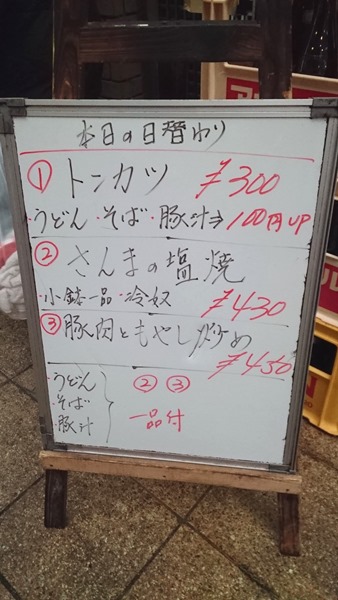 本日の日替わり
① トンカツ ¥300
・うどん ・そば ・豚汁⇒100円UP
② さんまの塩焼
・小鉢一品 ・冷奴 ¥430
③ 豚肉ともやし炒め
¥450
・うどん
・そば
・豚汁
② ③
一品付